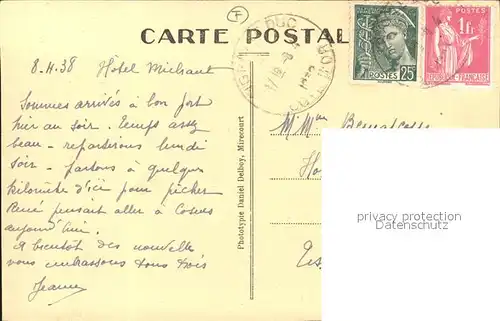 CARTE POSTAL
8.4.38 Hotel Michaut
Sommes arrivés à bon port
hier au soir. Temps assez
beau - repartirons lundi
soir - partons à quelque
kilomètre d'ici pour pêcher
René pensait aller à
aujourd'hui.
A bientôt des nouvelles
vous embrassons tous trois
Jeanne
Phototypie Daniel Delboy, Mirecourt
POSTES 25
1F POSTES
privacy protection
Datenschutz